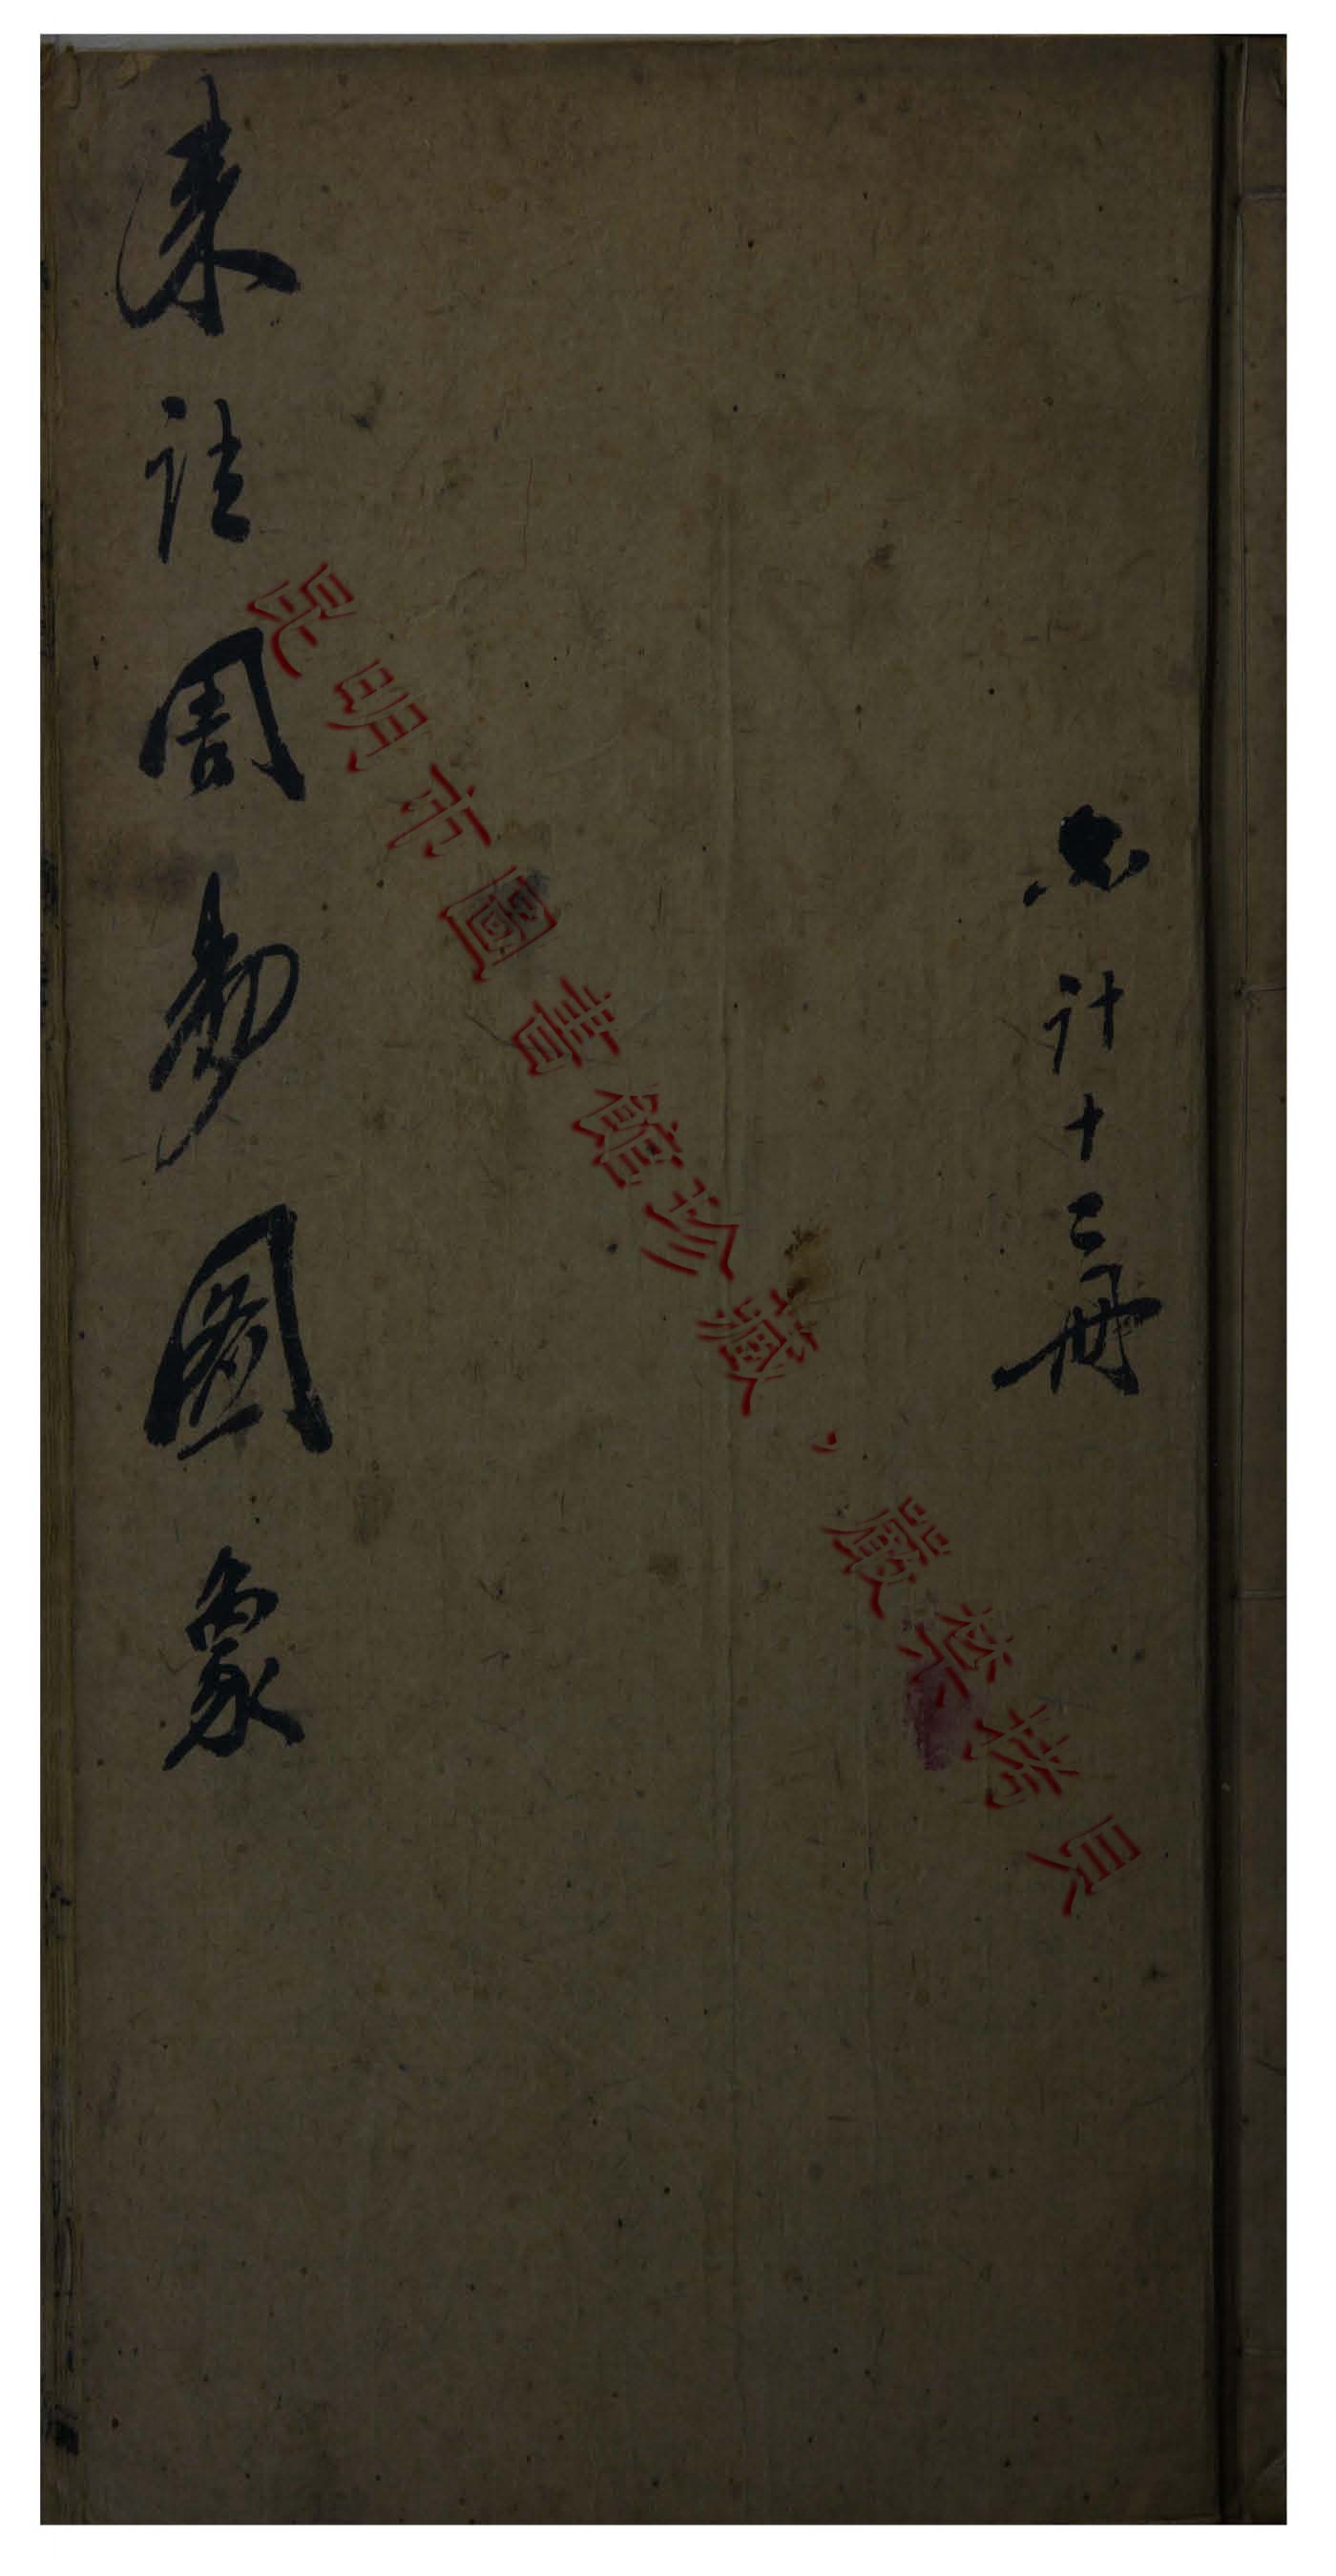 共計十二冊
來註周易圖象
昆明市圖書館珍藏，嚴禁拷貝